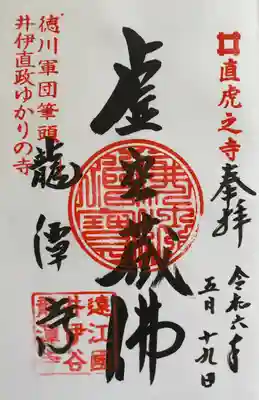 直虎之寺
奉拝
令和六年
五月十九日
虚空蔵佛
徳川軍団筆頭
井伊直政ゆかりの寺
龍潭寺
遠江國
井伊谷
龍潭寺